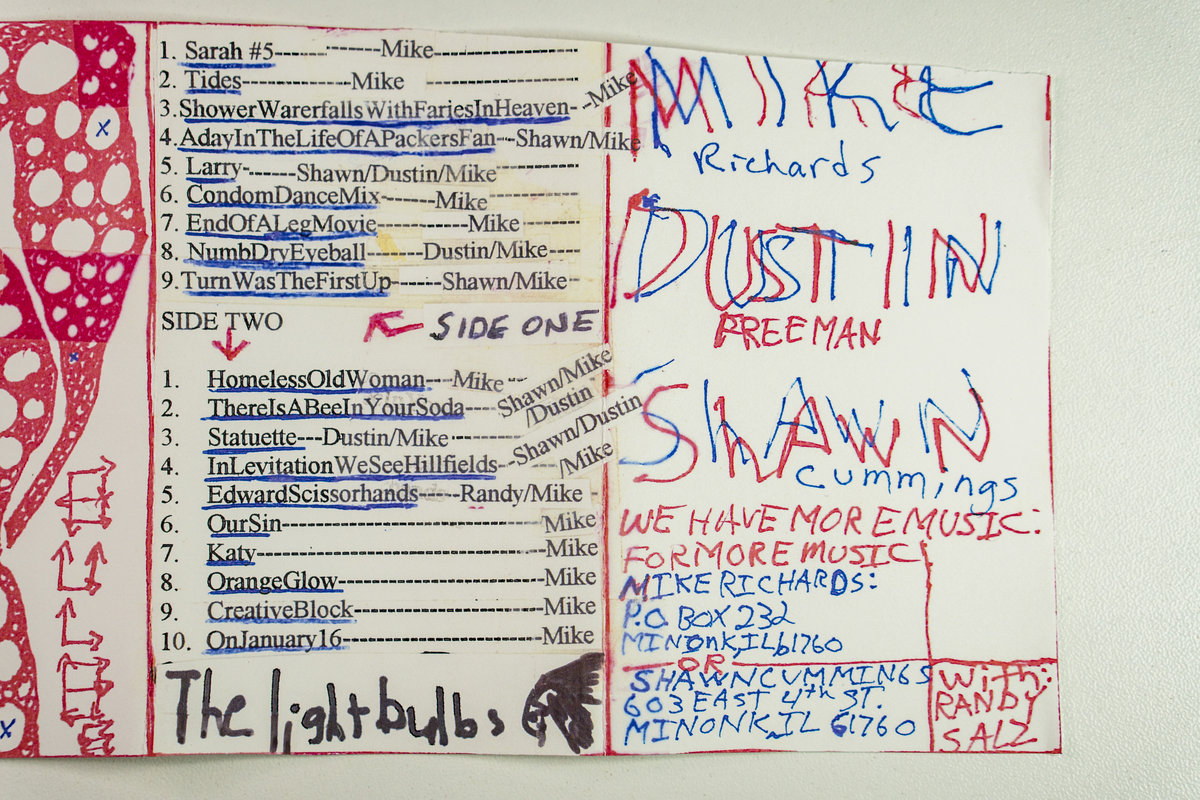 1. Sarah #5-----------Mike-----------------
2. Tides-------------Mike ------------------
3.ShowerWarerfallsWithFariesInHeaven- -Mike
4.AdayInTheLifeOfAPackersFan--Shawn/Mike
5. Larry-------Shawn/Dustin/Mike----------
6. CondomDanceMix------Mike-----------
7. EndOfALegMovie----------Mike------
8. NumbDryEyeball-------Dustin/Mike---
9.TurnWasTheFirstUp------Shawn/Mike--
SIDE TWO
SIDE ONE
1. HomelessOldWoman---Mike --
2. ThereIsABeeInYourSoda----Shawn/Mike
/Dustin
3. Statuette---Dustin/Mike----------
4. InLevitationWeSeeHillfields--Shawn/Dustin
/Mike
5. EdwardScissorhands-----Randy/Mike -
6. OurSin-----------------------------Mike
7. Katy--------------------------------Mike
8. OrangeGlow-----------------------Mike
9. CreativeBlock---------------------Mike
10. OnJanuary16---------------------Mike
The lightbulbs
MIKE
Richards
DUSTIN
FREEMAN
SHAWN
Cummings
WE HAVE MORE MUSIC:
FOR MORE MUSIC
MIKE RICHARDS:
P.O. BOX 232
MINONK, IL 61760
OR
SHAWN CUMMINGS
603 EAST 4th ST.
MINONK, IL 61760
With:
RANDY
SALZ